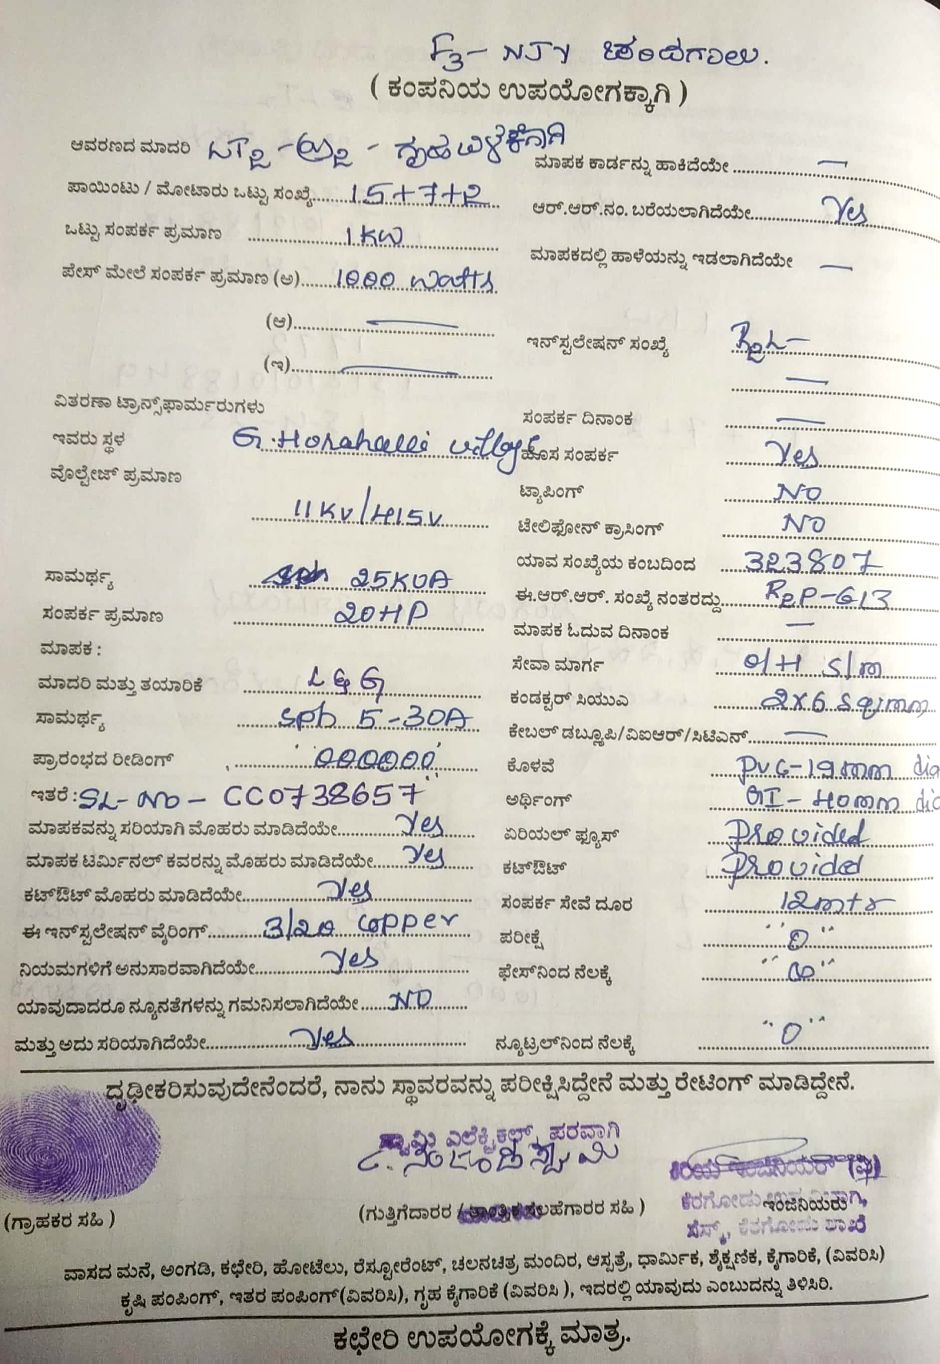 F3 - NJY ಚಂದಗಾಲು.
( ಕಂಪನಿಯ ಉಪಯೋಗಕ್ಕಾಗಿ )
ಆವರಣದ ಮಾದರಿ - ಗೃಹ ಬಳಕೆಗಾಗಿ
ಮಾಪಕ ಕಾರ್ಡನ್ನು ಹಾಕಿದೆಯೇ —
ಪಾಯಿಂಟು / ಮೋಟಾರು ಒಟ್ಟು ಸಂಖ್ಯೆ 15+7+2
ಆರ್.ಆರ್.ನಂ. ಬರೆಯಲಾಗಿದೆಯೇ Yes
ಒಟ್ಟು ಸಂಪರ್ಕ ಪ್ರಮಾಣ 1 KW
ಮಾಪಕದಲ್ಲಿ ಹಾಳೆಯನ್ನು ಇಡಲಾಗಿದೆಯೇ —
ಫೇಸ್ ಮೇಲೆ ಸಂಪರ್ಕ ಪ್ರಮಾಣ (ಅ) 1000 Watts
(ಆ) —
ಇನ್‌ಸ್ಟಲೇಷನ್ ಸಂಖ್ಯೆ R2L—
(ಇ) —
—
ವಿತರಣಾ ಟ್ರಾನ್ಸ್‌ಫಾರ್ಮರುಗಳು
ಸಂಪರ್ಕ ದಿನಾಂಕ —
ಇವರು ಸ್ಥಳ G. Horahalli village
ಹೊಸ ಸಂಪರ್ಕ Yes
ವೊಲ್ಟೇಜ್ ಪ್ರಮಾಣ
ಟ್ಯಾಪಿಂಗ್ NO
11KV/415V
ಟೇಲಿಫೋನ್ ಕ್ರಾಸಿಂಗ್ NO
ಯಾವ ಸಂಖ್ಯೆಯ ಕಂಬದಿಂದ 323807
ಸಾಮರ್ಥ್ಯ 25KVA
ಈ.ಆರ್.ಆರ್. ಸಂಖ್ಯೆ ನಂತರದ್ದು R2P-613
ಸಂಪರ್ಕ ಪ್ರಮಾಣ 20HP
ಮಾಪಕ ಓದುವ ದಿನಾಂಕ —
ಮಾಪಕ :
ಸೇವಾ ಮಾರ್ಗ O/H S/m
ಮಾದರಿ ಮತ್ತು ತಯಾರಿಕೆ L&G
ಕಂಡಕ್ಟರ್ ಸಿಯುಎ 2x6 sqmm
ಸಾಮರ್ಥ್ಯ Sph 5-30A
ಕೇಬಲ್ ಡಬ್ಲ್ಯೂಪಿ/ವಿಐಆರ್/ಸಿಟಿಎನ್ —
ಪ್ರಾರಂಭದ ರೀಡಿಂಗ್ "000000"
ಕೊಳವೆ PVC-19mm dia
ಇತರೆ : SL-NO - CC0738657
ಅರ್ಥಿಂಗ್ GI-40mm dia
ಮಾಪಕವನ್ನು ಸರಿಯಾಗಿ ಮೊಹರು ಮಾಡಿದೆಯೇ Yes
ಏರಿಯಲ್ ಫ್ಯೂಸ್ Provided
ಮಾಪಕ ಟರ್ಮಿನಲ್ ಕವರನ್ನು ಮೊಹರು ಮಾಡಿದೆಯೇ Yes
ಕಟ್‌ಔಟ್ Provided
ಕಟ್‌ಔಟ್ ಮೊಹರು ಮಾಡಿದೆಯೇ Yes
ಸಂಪರ್ಕ ಸೇವೆ ದೂರ 12mtr
ಈ ಇನ್‌ಸ್ಟಲೇಷನ್ ವೈರಿಂಗ್ 3/20 copper
ಪರೀಕ್ಷೆ "0"
ನಿಯಮಗಳಿಗೆ ಅನುಸಾರವಾಗಿದೆಯೇ Yes
ಫೇಸ್‌ನಿಂದ ನೆಲಕ್ಕೆ
ಯಾವುದಾದರೂ ನ್ಯೂನತೆಗಳನ್ನು ಗಮನಿಸಲಾಗಿದೆಯೇ NO
ಮತ್ತು ಅದು ಸರಿಯಾಗಿದೆಯೇ Yes
ನ್ಯೂಟ್ರಲ್‌ನಿಂದ ನೆಲಕ್ಕೆ "0"
ದೃಢೀಕರಿಸುವುದೇನೆಂದರೆ, ನಾನು ಸ್ಥಾವರವನ್ನು ಪರೀಕ್ಷಿಸಿದ್ದೇನೆ ಮತ್ತು ರೇಟಿಂಗ್ ಮಾಡಿದ್ದೇನೆ.
ಸ್ವಾಮಿ ಎಲೆಕ್ಟ್ರಿಕಲ್ಸ್, ಪರವಾಗಿ
ಕಿರಿಯ ಇಂಜಿನಿಯರ್ (ವಿ)
ಕೆರಗೋಡು ಉಪ ವಿಭಾಗ,
(ಗ್ರಾಹಕರ ಸಹಿ )
(ಗುತ್ತಿಗೆದಾರರ / ಸಲಹೆಗಾರರ ಸಹಿ )
ಇಂಜಿನಿಯರು
ಸೆಸ್ಕ್, ಕೆರಗೋಡು ಶಾಖೆ
ವಾಸದ ಮನೆ, ಅಂಗಡಿ, ಕಛೇರಿ, ಹೋಟೆಲು, ರೆಸ್ಟೋರೆಂಟ್, ಚಲನಚಿತ್ರ ಮಂದಿರ, ಆಸ್ಪತ್ರೆ, ಧಾರ್ಮಿಕ, ಶೈಕ್ಷಣಿಕ, ಕೈಗಾರಿಕೆ, (ವಿವರಿಸಿ)
ಕೃಷಿ ಪಂಪಿಂಗ್, ಇತರ ಪಂಪಿಂಗ್(ವಿವರಿಸಿ), ಗೃಹ ಕೈಗಾರಿಕೆ (ವಿವರಿಸಿ ), ಇದರಲ್ಲಿ ಯಾವುದು ಎಂಬುದನ್ನು ತಿಳಿಸಿರಿ.
ಕಛೇರಿ ಉಪಯೋಗಕ್ಕೆ ಮಾತ್ರ.